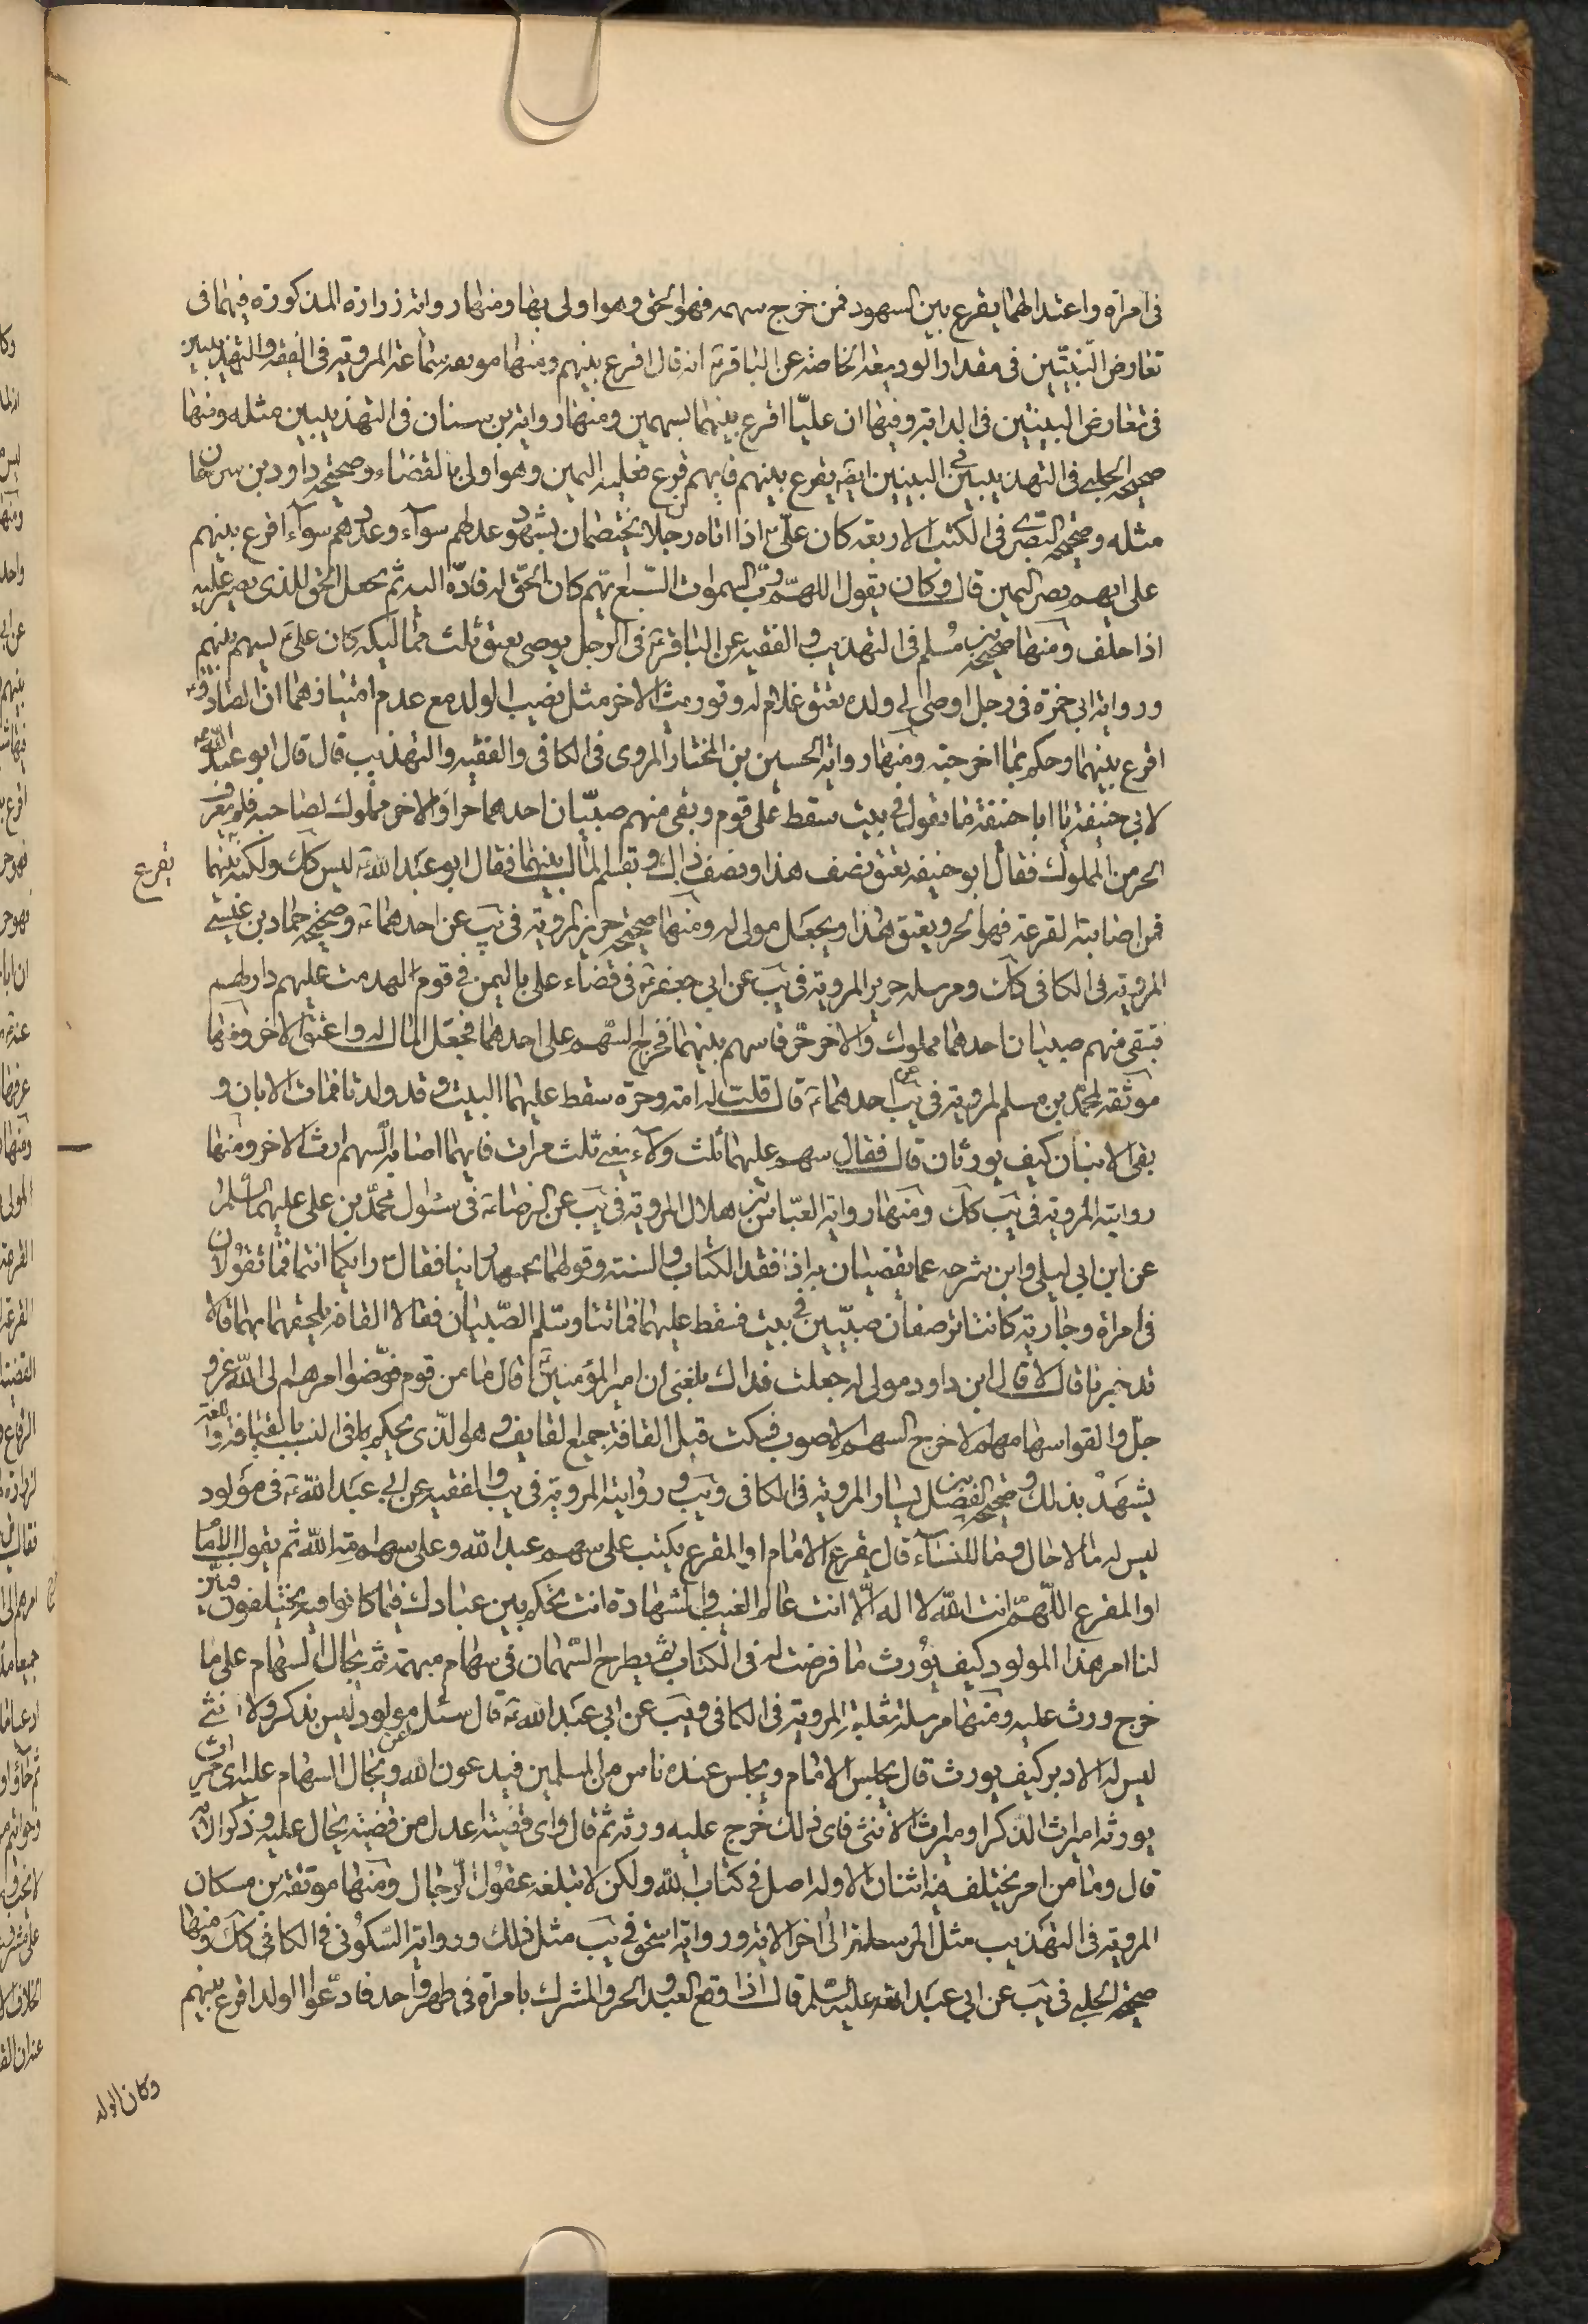 فى امراة واعتدالهما يقرع بين الشهود فمن خرج سهمه فهو المحق وهو اولى بها ومنها رواية زرارة المذكورة فيهما فى
تعارض البينتين فى مقدار الوديعة الخاصة عن الباقرؑ انه قال اقرع بينهم ومنها موثقة سماعة المروية فى الفقيه والتهذيبين
فى تعارض البينتين فى الدابة وفيها ان عليّا اقرع بينهما بسهمين ومنها رواية بن سنان فى التهذيبين مثله ومنها
صحيحة الحلبى فى التهذيبين فى البينتين ايضه يقرع بينهم فايهم قرع فعليه اليمين وهو اولى بالقضاء وصحيحة داود بن سرحان
مثله وصحيحة البصرى فى الكتب الاربعة كان علىّؑ اذا اتاه رجلان يختصمان بشهود عدلهم سوآء وعددهم سوآء اقرع بينهم
على ايهم يصير اليمين قال وكان يقول اللهمّ ربّ السموات السّبع ايّهم كان الحقّ له فادّه اليه ثم يجعل الحق للذى يصير عليه
اذا حلف ومنها صحيحة بن مُسلم فى التهذيب والفقيه عن الباقرؑ فى الرجل يوصى بعتق ثلث مماليكه كان علىّؑ يسهم بينهم
ورواية ابى حمزة فى رجل اوصى الى ولده بعتق غلام له وتوريث الاخر مثل نصيب الولد مع عدم امتيازهما ان الصادقؑ
اقرع بينهما وحكم بما اخرجته ومنها رواية الحسين بن المختار المروى فى الكافى والفقيه والتهذيب قال قال ابو عبد اللهؑ
لابى حنيفة يا ابا حنيفة ما تقول فى بيت سقط على قوم وبقى منهم صبيّان احدهما حرّ والاخر مملوك لصاحبه فلم يعرف
الحر من المملوك فقال ابو حنيفه يعتق نصف هذا ونصف ذاك ويقسم المال بينهما فقال ابو عبَد اللهؑ ليس كك ولكنه يقرع بينهما
فمن اصابته القرعة فهو الحر ويعتق هذا ويجعَل مولى له ومنها صحيحة حريز المروية فى يب عن احدهماؑ وصحيحة حماد بن عيسى
المروية فى الكافى كك ومرسلة حريز المروية فى يَب عن ابى جعفرؑ فى قضاء على باليمن فى قوم انهدمت عليهم دارلهم
فبقى منهم صبيان احدهما مملوك والاخر حرّ فاسهم بينهما فخرج السّهم على احدهما فجعل المال له واعتق الاخر ومنها
موثقة محمّد بن مسلم المروية فى يب عن احدهماؑ قال قلت له امة وحرّة سقط عليهما البيت وقد ولدتا فماتت الامّان و
بقى الابنان كيف يورثان قال فقال سهم عليهما ثلث ولآء يعنى ثلث مرات فايهما اصابه السهم ورث الاخر ومنها
روايته المروية فى يَب كك ومنها رواية العبّاس بن هلال المروية فى يَب عن الرضاؑ فى سئوال محمّد بن على عليهما السّلم
عن ابن ابى ليلى وابن شبرمه عما يقضيان به اذا فقد الكتاب والسنة وقولهما نجتهد راينا فقال رايكما انتما فما تقولان
فى امراة وجارية كانتا ترضعان صبيّين فى بيت فسقط عليهما فماتتا وسلم الصّبيان فقالا القافة يلحقهما بهما قال
قد خبرنا قال لا قال ابن داود مولى له جعلت فداك بلغنى ان امير المؤمنينؑ قال ما من قوم فوّضوا امرهم الى اللّه عز و
جلّ والقوا سهامهم الا خرج السهم الاصوب فسكت قيل القافة جميع القايف وهو الذى يحكم فى النسب بالقيافة واللغة
يشهَد بذلك وصحيحة الفضيل بن يسار المروية فى الكافى ويَب ورواية المروية فى يب والفقيه عن ابى عبَد اللهؑ فى مولود
ليس له ما للرجال وما للنسآء قال يقرع الامام او المقرع يكتب على سهم عبد الله وعلى سهم امة اللّه ثم يقول الامام
او المقرع اللّهمّ انت اللّه لا اله الّا انت عالم الغيب والشهادة انت تحكم بين عبادك فيما كانوا فيه يختلفون فبيّن
لنا امر هذا المولود كيف يورث ما فرضت له فى الكتاب ثم يطرح السّهمان فى سهام مبهمة ثم يجال السهام على ما
خرج ورث عليه ومنها مرسلة ثعلبة المروية فى الكافى ويَب عن ابى عبَد اللهؑ قال سئل عن مولود ليس بذكر ولا انثى
ليس له الا دبر كيف يورث قال يجلس الامام ويجلس عنده ناس من المسلمين فيدعون الله ويجال السهام عليه اى ميراث
يورثه اميراث الذكر او ميراث الانثى فاى ذلك خرج عليه ورثه ثم قال واى قضية اعدل من قضية يجال عليه وذكر الاية
قال وما من امر يختلف فيه اثنان الا وله اصل فى كتاب اللّه ولكن لا تبلغه عقول الرّجال ومنها موثقة بن مسكان
المروية فى التهَذيب مثل المرسلة الى اخر الاية ورواية اسحق فى يَب مثل ذلك ورواية السّكونى فى الكافى كك ومنها
صحيحة الحلبى فى يَب عن ابى عبَد اللّه عليه السّلم قال اذا وقع العبد والحر والمشرك بامراة فى طهر واحد فادّعوا الولد اقرع بينهم
وكان الولد